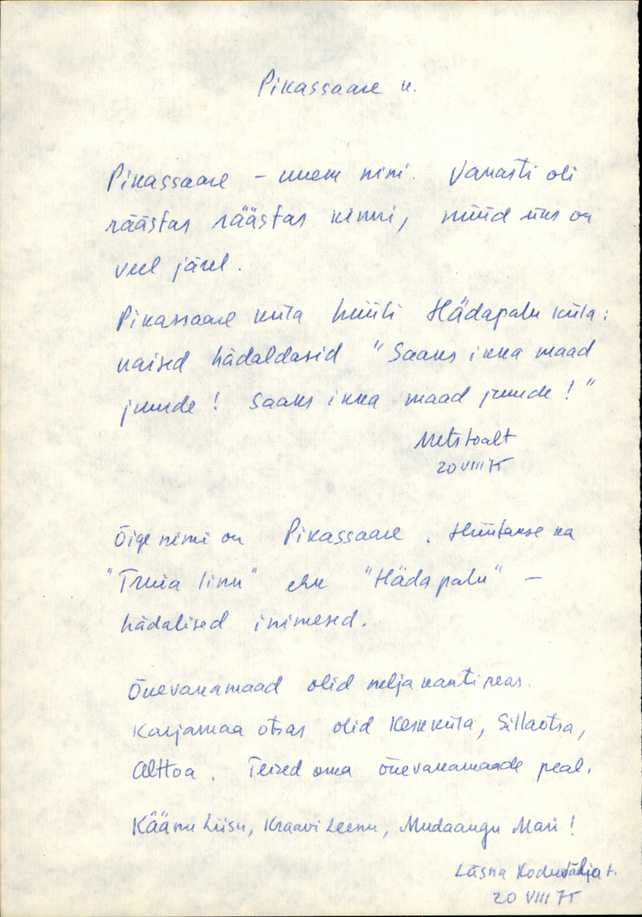 Pikassaare k.
Pikassaare - uuem nimi. Vanasti oli
räästas räästas kinni, nüüd üks on
veel järel.
Pikassaare küla hüüti Hädapalu küla:
naised hädaldasid "Saaks ikka maad
juurde! Saaks ikka maad juurde!"
Metstoalt
20 VIII 75
Õige nimi on Pikassaare. Hüütakse ka
"Truia linn" ehk "Hädapalu" -
hädalised inimesed.
Õuevanamaad olid nelja kanti peas.
Karjamaa otsas olid Keskküla, Sillaotsa,
Alttoa. Teised oma õuevanamaade peal.
Käänu Liisu, Kraavi Leenu, Mudaaugu Mari!
Lüsna Koduväljat.
20 VIII 75